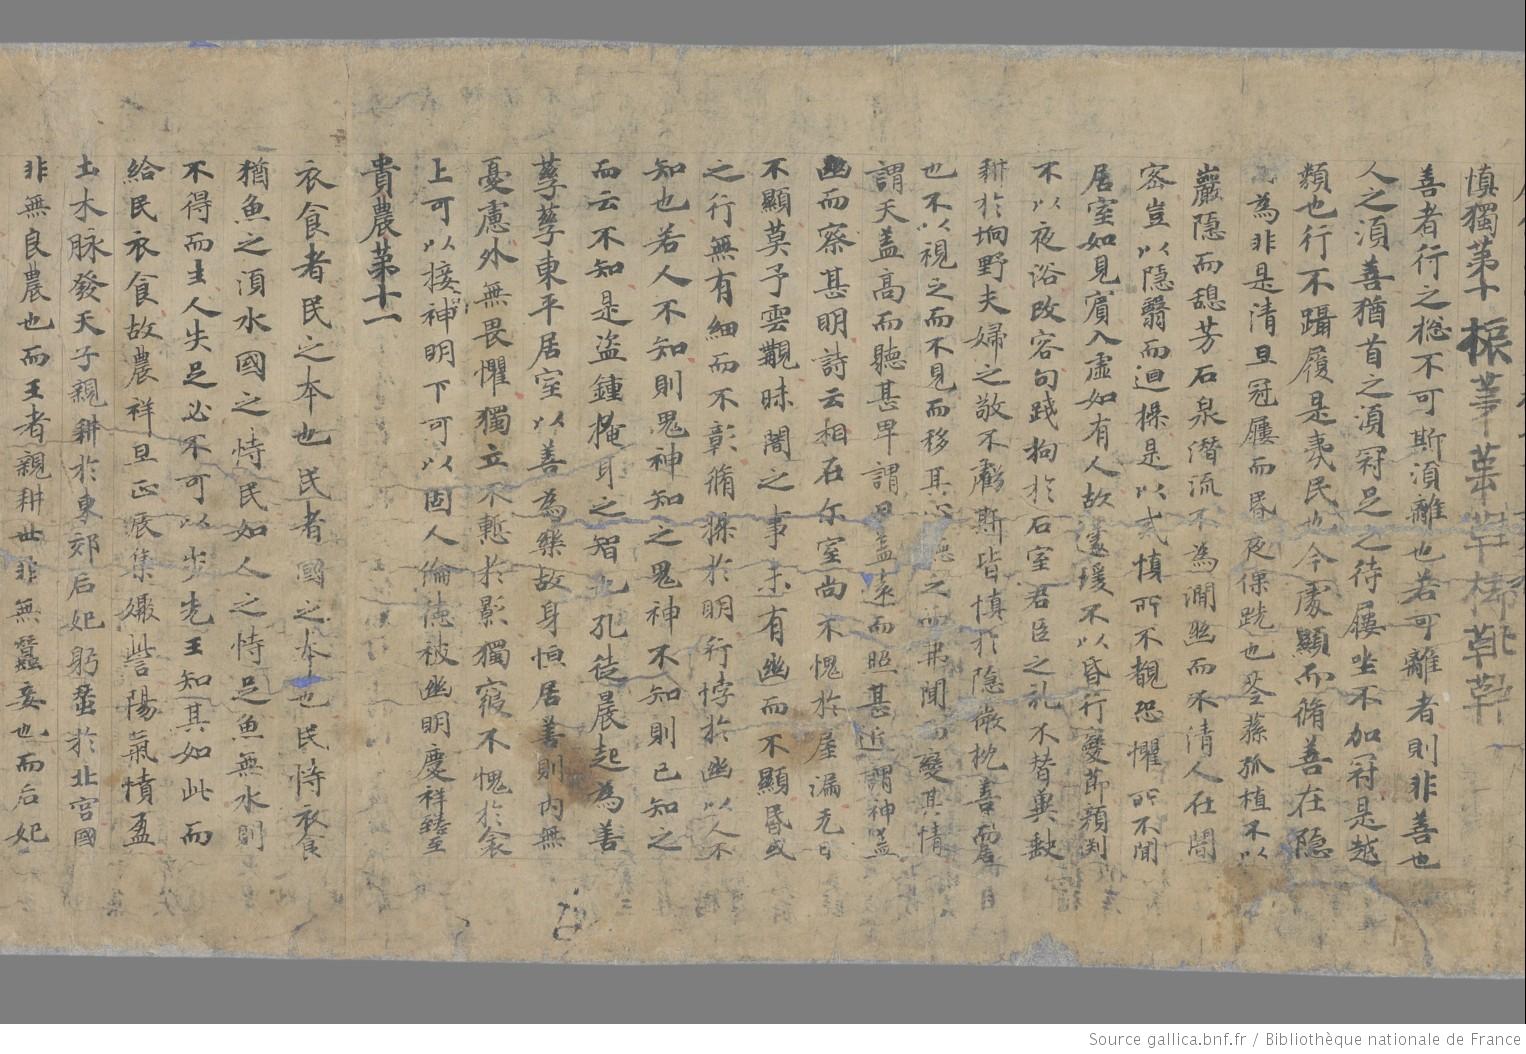 慎獨第十
善者行之揔不可斯湏離也若可離者則非善也
人之湏善猶首之湏冠足之待屨首不加冠是越
類也行不躡履是夷民也今處顯而脩善在隐
為非是清旦冠屨而昬夜倮跣也荃蓀孤植不以
巖隐而歇芳石泉潛流不為澗幽而不清人在闇
密豈以隐翳而迴操是以戒慎所不覩恐懼所不聞
居室如見賔入虚如有人故蘧瑗不以昏行變節顔渕
不以夜浴改容句踐拘於石室君臣之礼不替兾缺
耕於坰野夫婦之敬不虧斯皆慎於隐微枕善而居
也不以視之而不見而移其心聽之而弗聞而變其情
謂天盖高而聽甚卑謂日盖遠而照甚近謂神盖
幽而察甚明詩云相在尔室尚不愧於屋漏无曰
不顯莫予雲覯昧闇之事未有幽而不顯昬或
之行無有細而不彰脩操於明行悖於幽以人不
知也若人不知則鬼神知之鬼神不知則己知之
而云不知是盜鍾掩耳之智也孔徒晨起為善
孳孳東平居室以善為樂故身恒居善則内無
憂慮外無畏懼獨立不慙於影獨寢不愧於衾
上可以接神明下可以固人倫徳被幽明慶祥臻至
貴農第十一
衣食者民之本也民者國之本也民恃衣食
猶魚之湏水國之恃民如人之恃足魚無水則
不得而生人失足必不可以步先王知其如此而
給民衣食故農祥旦正辰集娵訾陽氣憤盈
土木脉發天子親耕於東郊后妃躬蠶於北宮國
非無良農也而王者親耕世非無蠶妾也而后妃